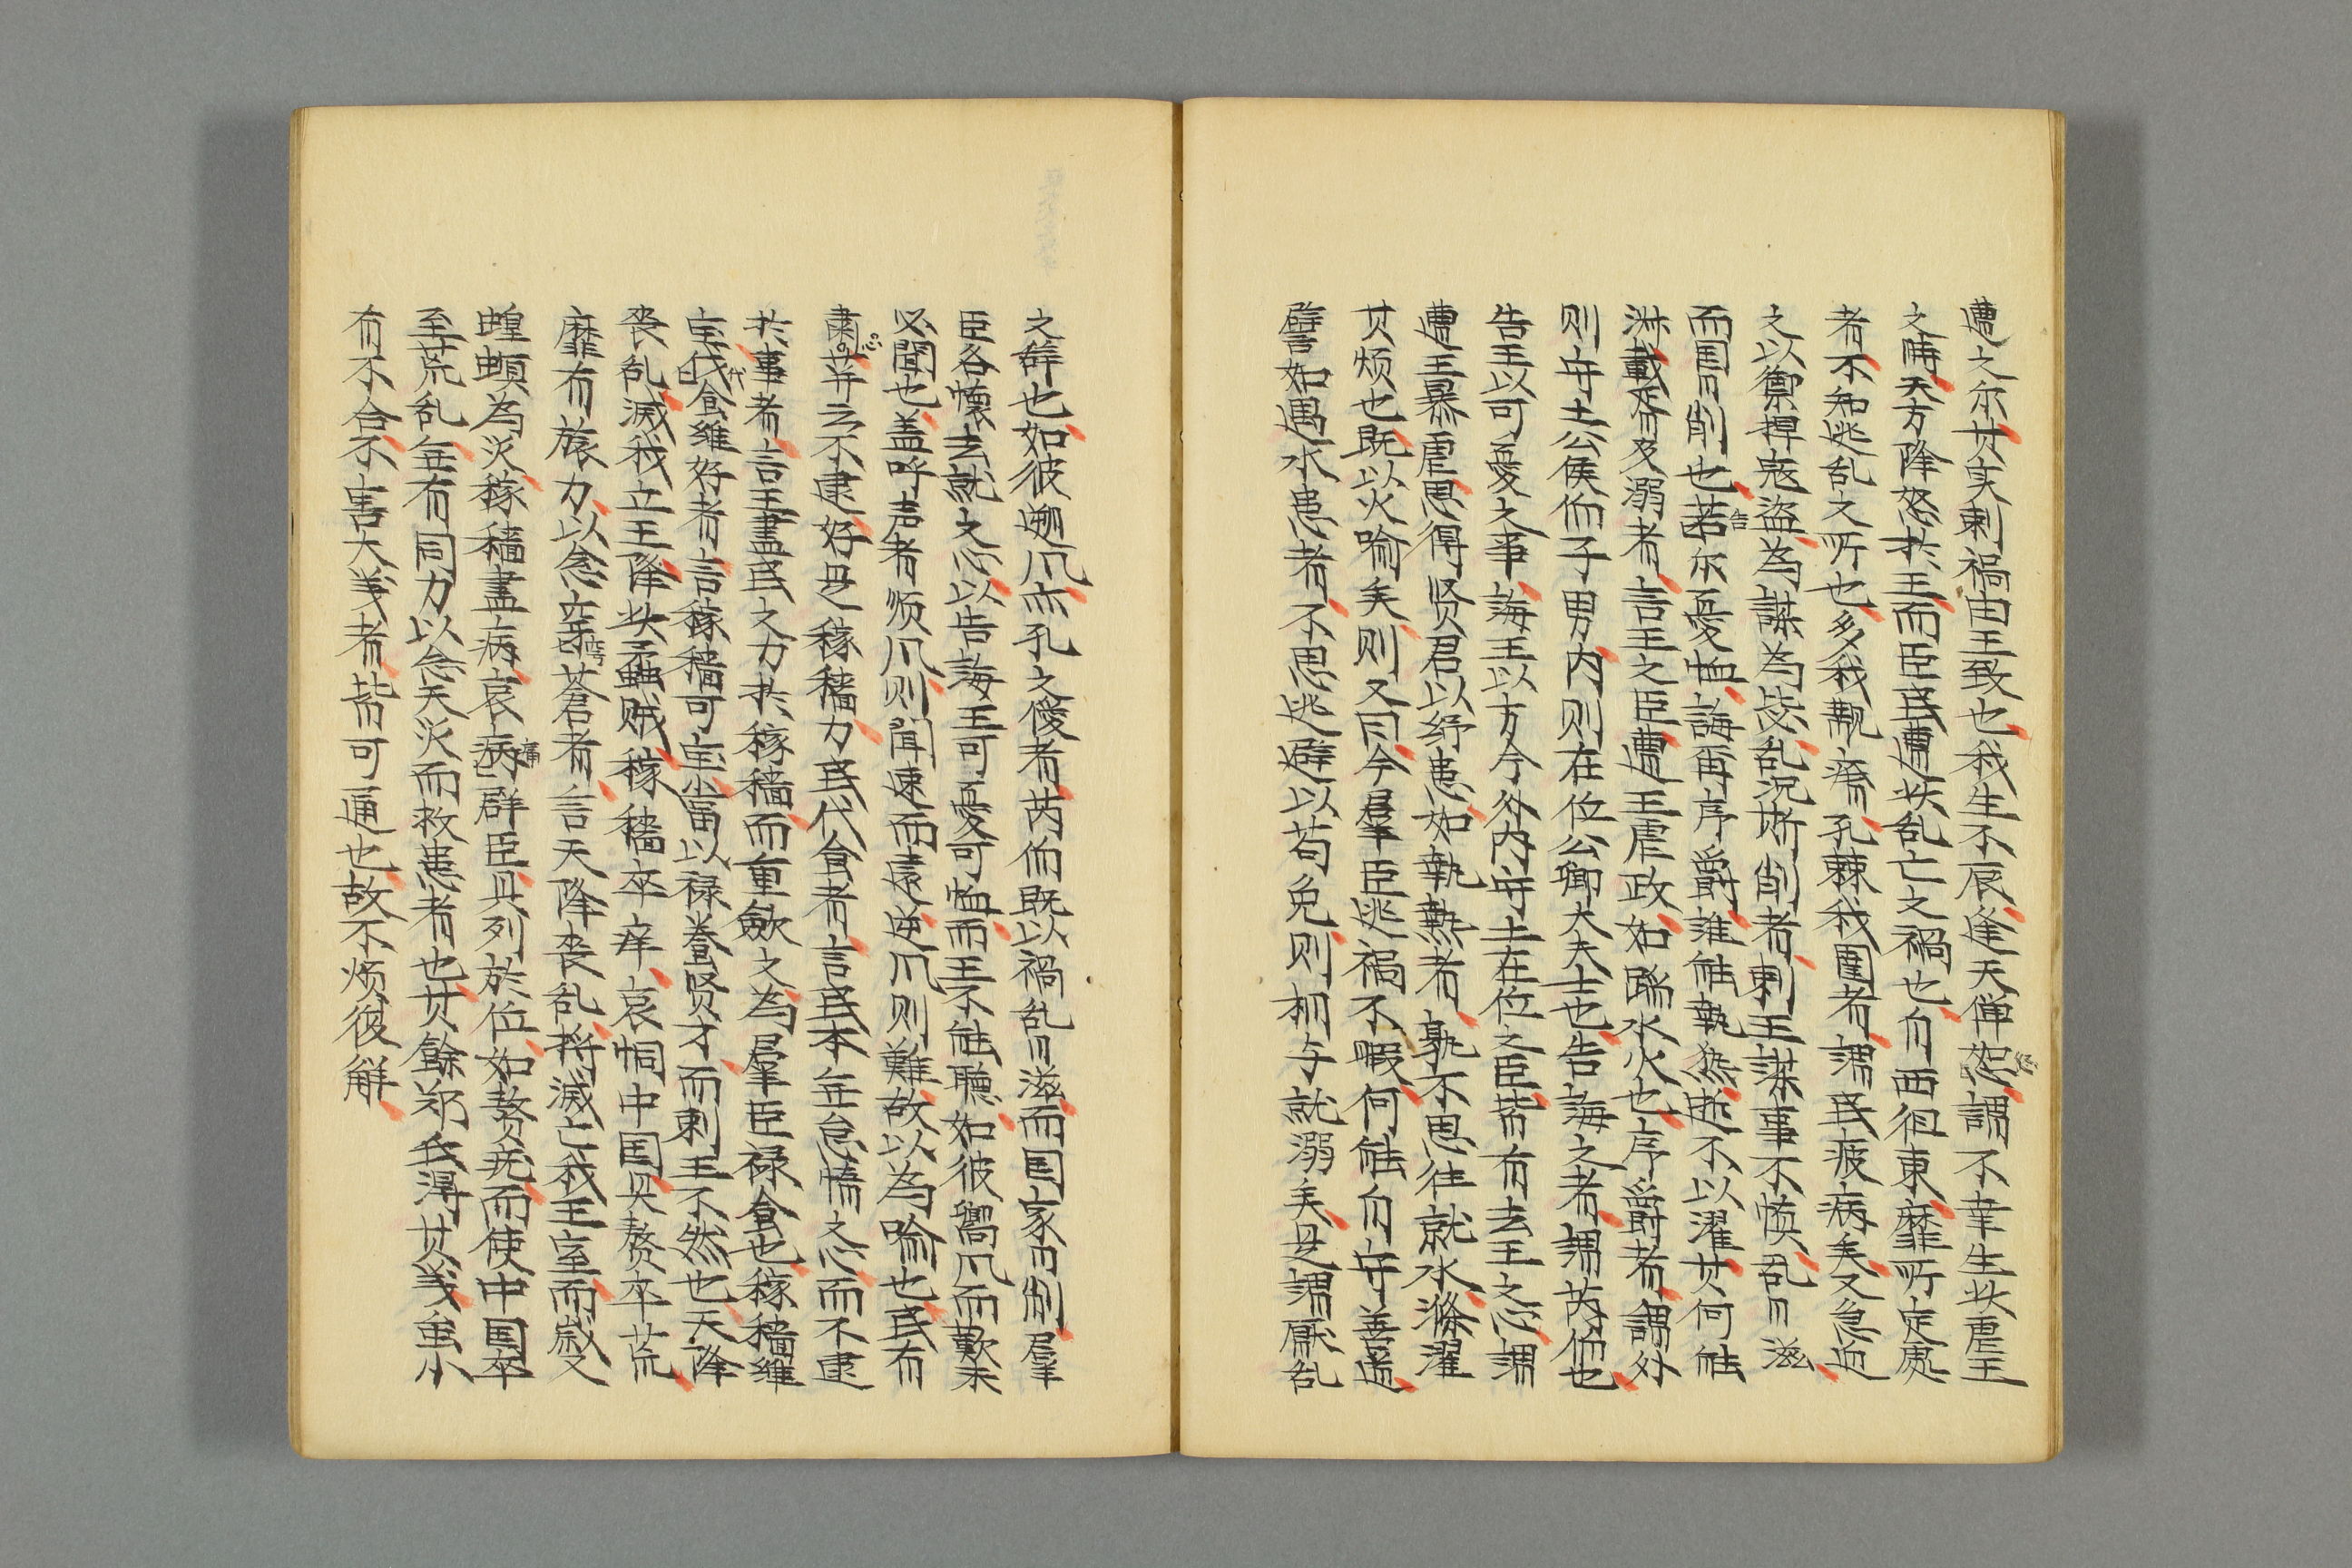 遭之尔其实刺禍由王致也我生不辰逢天僤怒謂不幸生此虐王
之時天方降怒於王而臣民遭此乱亡之禍也自西徂東靡所定處
者不知逃乱之所也多我覯痻孔棘我圉者謂民疲病矣又急迫
之以禦捍寇盜為謀為毖乱況斯削者刺王謀事不慎乱日滋
而国日削也告尔憂恤誨再序爵誰能執熱逝不以濯其何能
淑載胥及溺者言王之臣遭王虐政如蹈水火也序爵者謂外
則守土公侯伯子男内則在位公卿大夫士也告誨之者謂芮伯也
告王以可憂之事誨王以方今外内守土在位之臣皆有去王之心謂
遭王暴虐思得賢君以紓患如執熱者孰不思往就水滌濯
其煩也既以火喻矣則又曰今羣臣逃禍不暇何能自守善道
譬如遇水患者不思逃避以苟免則相与就溺矣毋謂厭乱
之辞也如彼遡風亦孔之僾者芮伯既以禍乱日滋而国家日削羣
臣各懐去就之心以告誨王可憂可恤而王不能聽如彼嚮風而歎未
必聞也盖呼者順風則聞速而遠逆風則難故以為喻也民有
肅心荓云不逮好是稼穡力民代食者言民本無怠惰之心而不逮
於事者言王盡民之力於稼穡而重斂之為羣臣禄食也稼穡維
宝代食維好者言稼穡可宝當以禄養賢才而刺王不然也天降
喪乱滅我立王降此蟊賊稼穡卒痒哀恫中国具贅卒荒
靡有旅力以念穹蒼者言天降喪乱将滅亡我王室而歲又
蝗螟為災稼穡盡病哀痛群臣具列於位如贅疣而使中国卒
至荒乱無有同力以念天災而救患者也其餘鄭氏得其義虽小
有不合不害大義者皆可通也故不煩復解